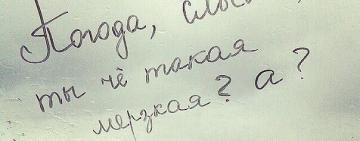 Погода,
ты чё такая
мерзкая? а?